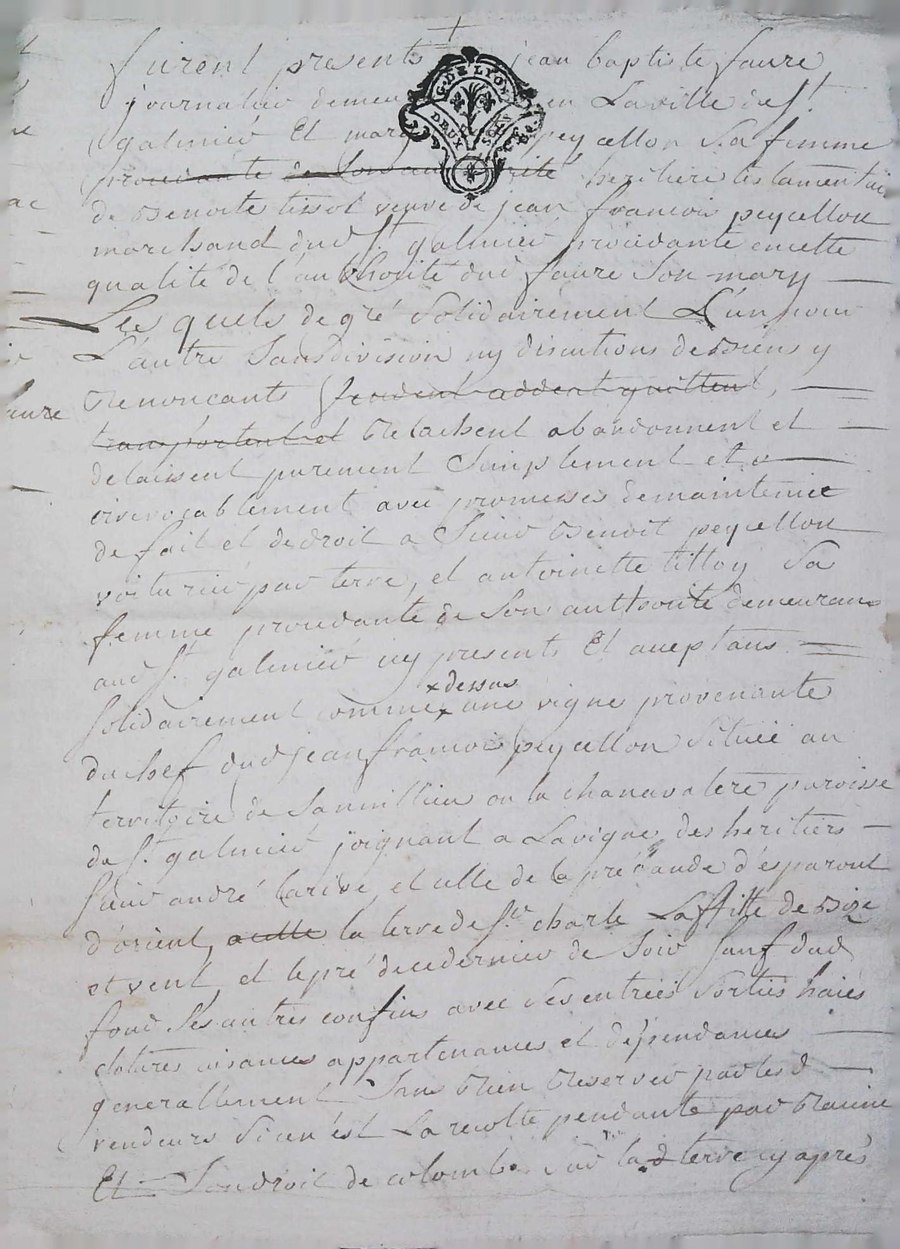 furent presents jean baptiste faure
G. DE LYON
DEUX SOLS
journalier demeu en La ville de St.
galmier Et marg peycellon Sa femme
procedante de son authorité heritiere testamentaire
de Benoite tissot veuve de jean francois peycellon
marchand dud St. galmier procedante en cette
qualité de l'authorité dud faure Son mary
Les quels de gré Solidairement L'un pour
L'autre Sans division ny discutions de Biens y
Renoncants vendent cedent quittent,
transportent et Relachent abandonnent et
delaissent purement Simplement et
irrevocablement avec promesses de maintenir
de fait et de droit a Sieur Benoit peycellon
voiturier par terre, et antoinette tilloy Sa
femme procedante de Son authorité demeurans
aud St. galmier icy presents Et acceptans
Solidairement comme dessus une vigne provenante
du chef dud jean francois peycellon Située au
territoire de ou la paroisse
de St. galmier joignant a La vigne des heritiers
Sieur andré larive, et celle de la prébande d'esparont
d'orient, a celle la terre de Sr. charle Laffitte de Bize
et vent, et le pré de ce dernier de Soir Sauf dud
fond Ses autres confins avec Ses entrées Sorties haies
clotures aisances appartenances et dépendances
generallement Sans Rien Reserver par lesd
vendeurs Si ce n'est La recolte pendante par Racine
Et Son droit de colomb Sur lad terre cy après
faure